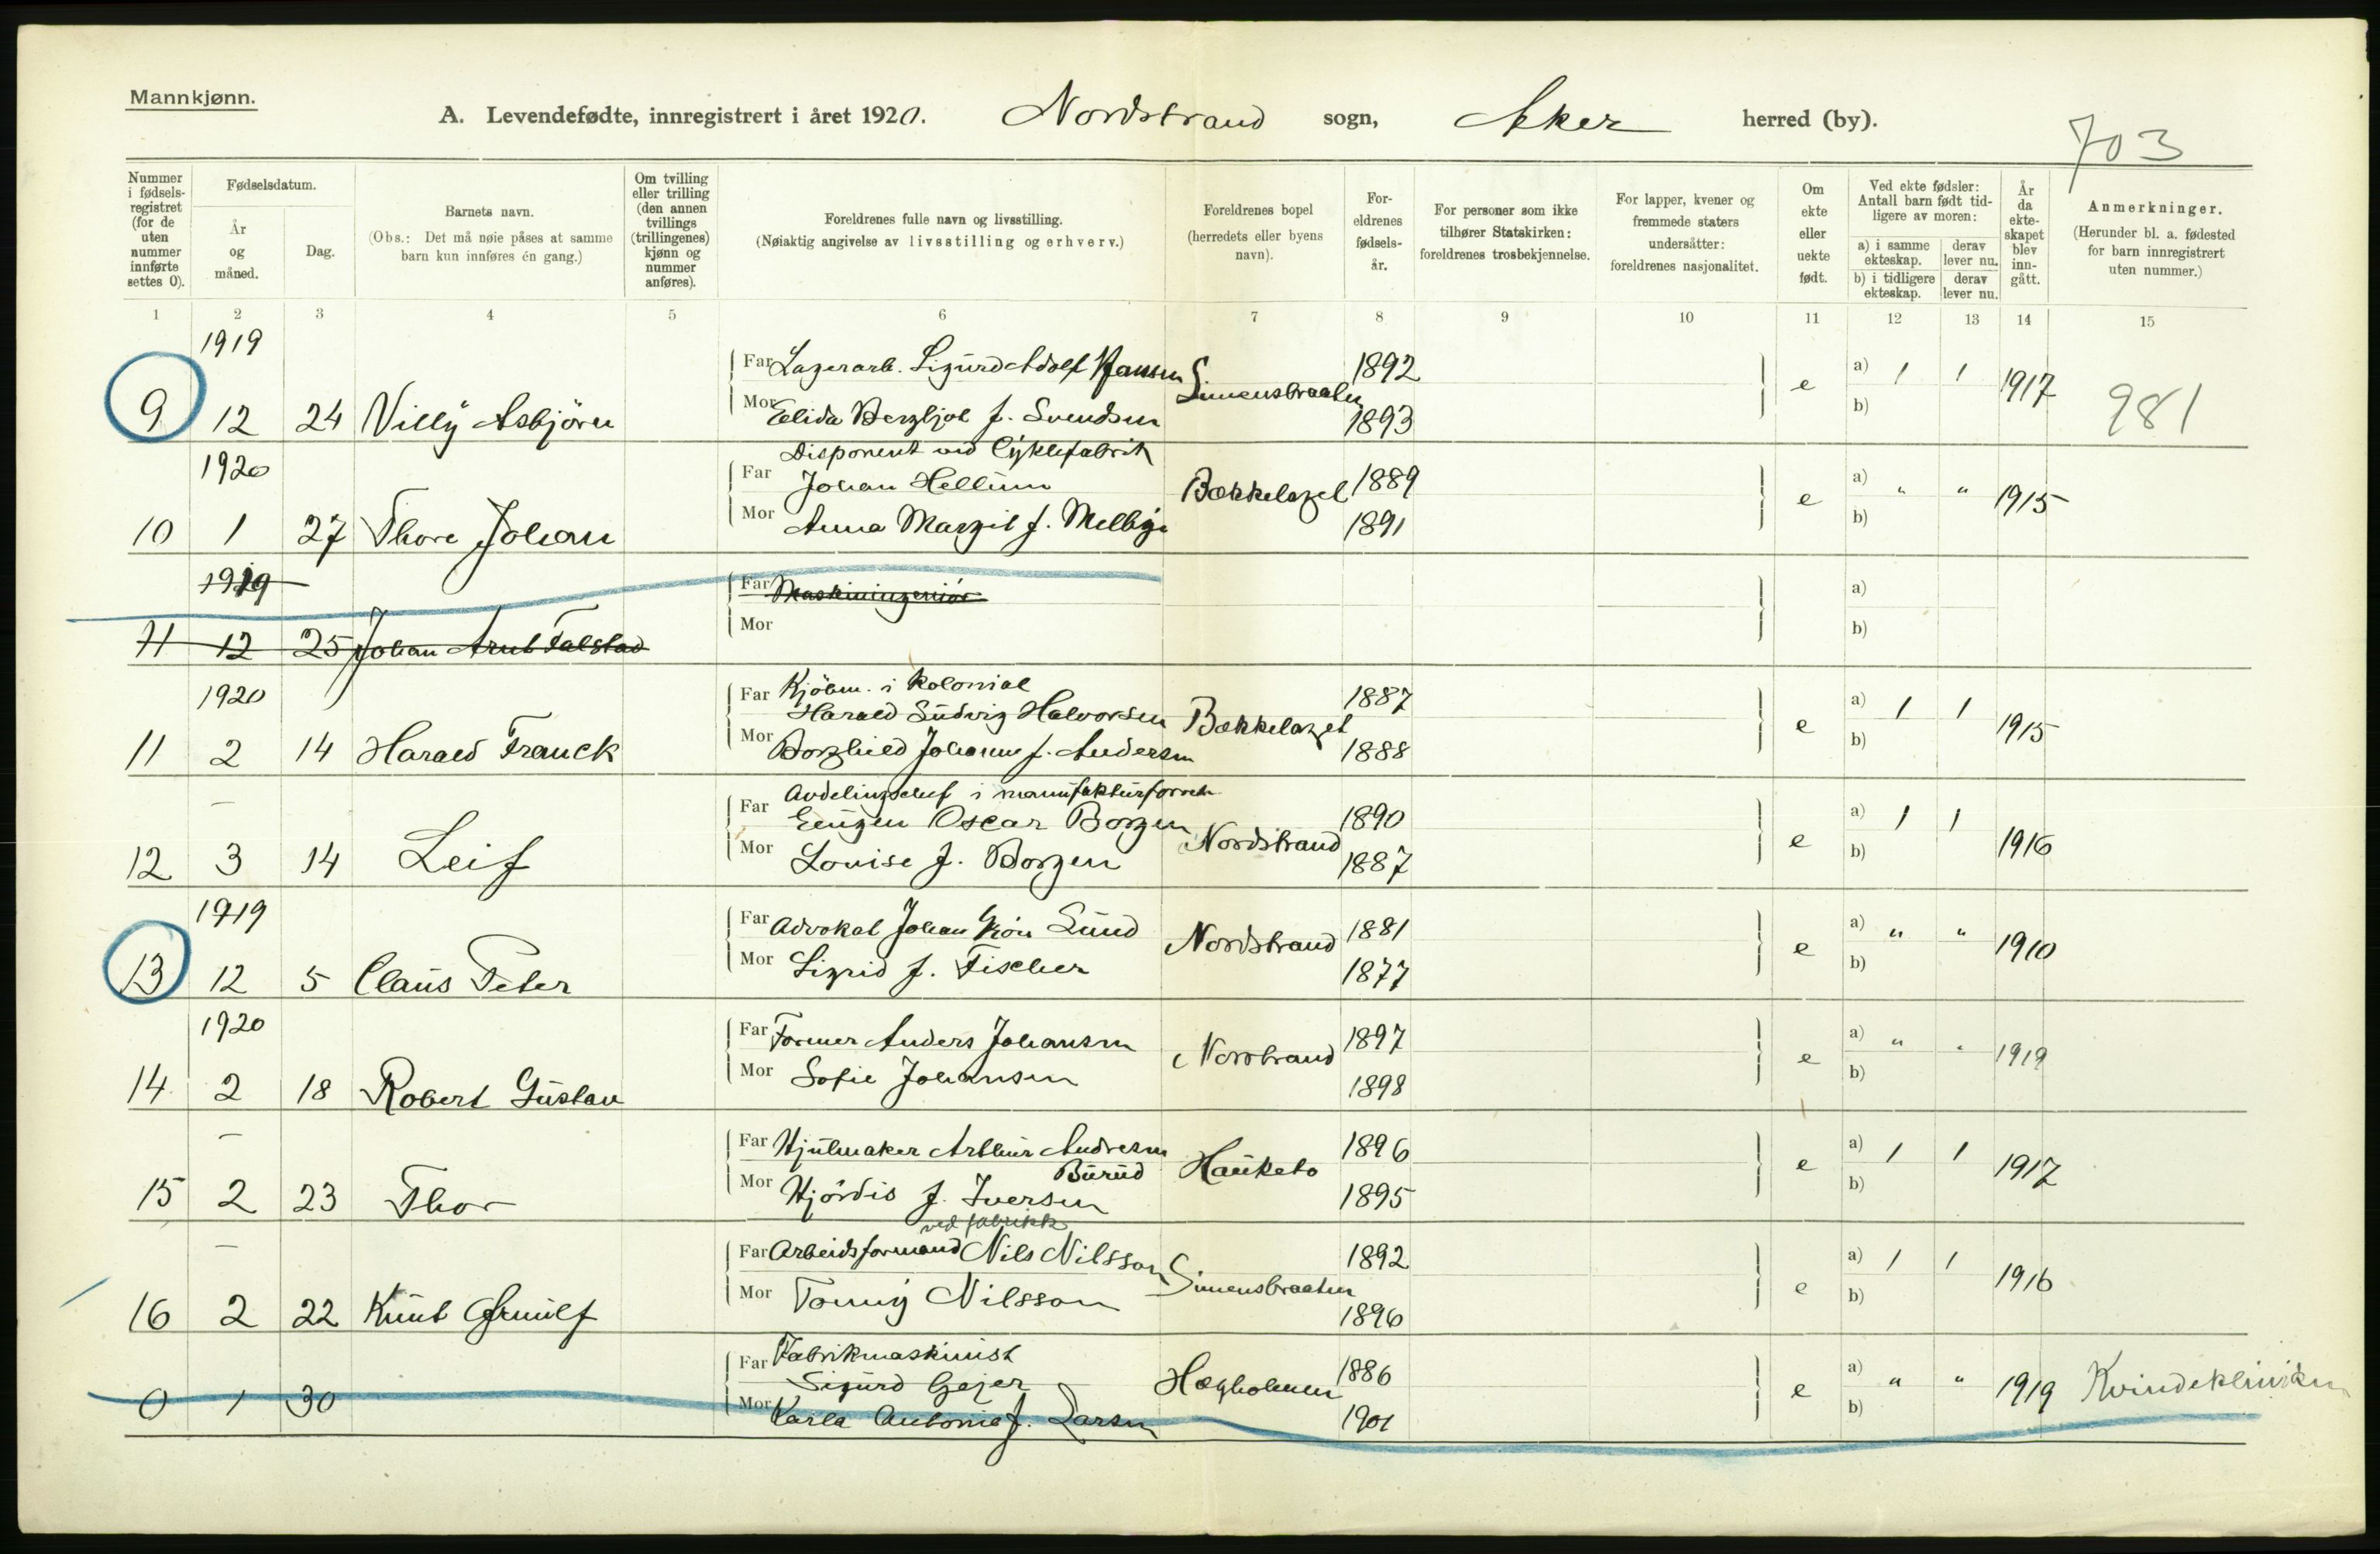 Mannkjønn.
A. Levendefødte, innregistrert i året 1920. Nordstrand sogn, Aker herred (by).
703
Nummer i fødselsregistret (for de uten nummer innførte settes 0).
Fødselsdatum.
År og måned.
Dag.
Barnets navn.
(Obs.: Det må nøie påses at samme barn kun innføres én gang.)
Om tvilling eller trilling (den annen tvillings (trillingenes) kjønn og nummer anføres).
Foreldrenes fulle navn og livsstilling.
(Nøiaktig angivelse av livsstilling og erhverv.)
Foreldrenes bopel (herredets eller byens navn).
Foreldrenes fødselsår.
For personer som ikke tilhører Statskirken: foreldrenes trosbekjennelse.
For lapper, kvener og fremmede staters undersåtter: foreldrenes nasjonalitet.
Om ekte eller uekte født.
Ved ekte fødsler: Antall barn født tidligere av moren:
a) i samme ekteskap. derav lever nu.
b) i tidligere ekteskap. derav lever nu.
År da ekteskapet blev inngått.
Anmerkninger.
(Herunder bl. a. fødested for barn innregistrert uten nummer.)
1 2 3 4 5 6 7 8 9 10 11 12 13 14 15
1919
Far Lagerarb. Sigurd Adolf Hansen Simensbraaten 1892 e a) 1 1 1917 981
9 12 24 Villy Asbjörn
Mor Elida Bergljot f. Svendsen 1893 b)
1920
Disponent ved Cyklefabrik
Far Johan Hellum Bækkelaget 1889 e a) " " 1915
10 1 27 Thore Johan
Mor Anna Margit f. Melbye 1891 b)
1919
Far Maskiningeniör a)
11 12 25 Johan Arnt Falstad
Mor b)
1920
Far Kjöbm. i kolonial
Harald Ludvig Halvorsen Bækkelaget 1887 e a) 1 1 1915
11 2 14 Harald Franck
Mor Borghild Johanne f. Andersen 1888 b)
–
Avdelingschef i manufakturforretn.
Far Eugen Oscar Borgen Nordstrand 1890 e a) 1 1 1916
12 3 14 Leif
Mor Louise f. Borgen 1887 b)
1919
Far Advokat Johan Grön Lund Nordstrand 1881 e a) " " 1910
13 12 5 Claus Peter
Mor Sigrid f. Fischer 1877 b)
1920
Far Former Anders Johansen Norstrand 1897 e a) " " 1919
14 2 18 Robert Gustav
Mor Sofie Johansen 1898 b)
–
Far Hjulmaker Arthur Andresen Burud Hauketo 1896 e a) 1 1 1917
15 2 23 Thor
Mor Hjördis f. Iversen 1895 b)
–
ved fabrikk
Far Arbeidsformand Nils Nilsson Simensbraaten 1892 e a) 1 1 1916
16 2 22 Knut Arnulf
Mor Tonny Nilsson 1896 b)
Far Fabrikmaskinist
Sigurd Gejer Hegholmen 1886 e a) " " 1919 Kvindekliniken
0 1 30
Mor Karla Antonie f. Larsen 1901 b)